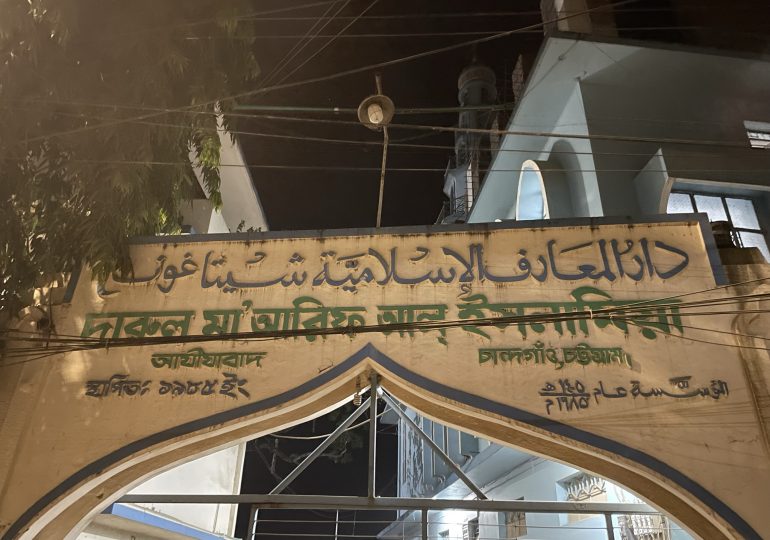 دارُ المعَارفِ الإسْلاميَّة شيتاغونغ
দারুল মা'আরিফ আল্ ইসলামিয়া
আযীযাবাদ চান্দগাঁও, চট্টগ্রাম।
স্থাপিতঃ ১৯৮৫ ইং
المؤسّسة عام ١٤٠٥هـ
١٩٨٥م